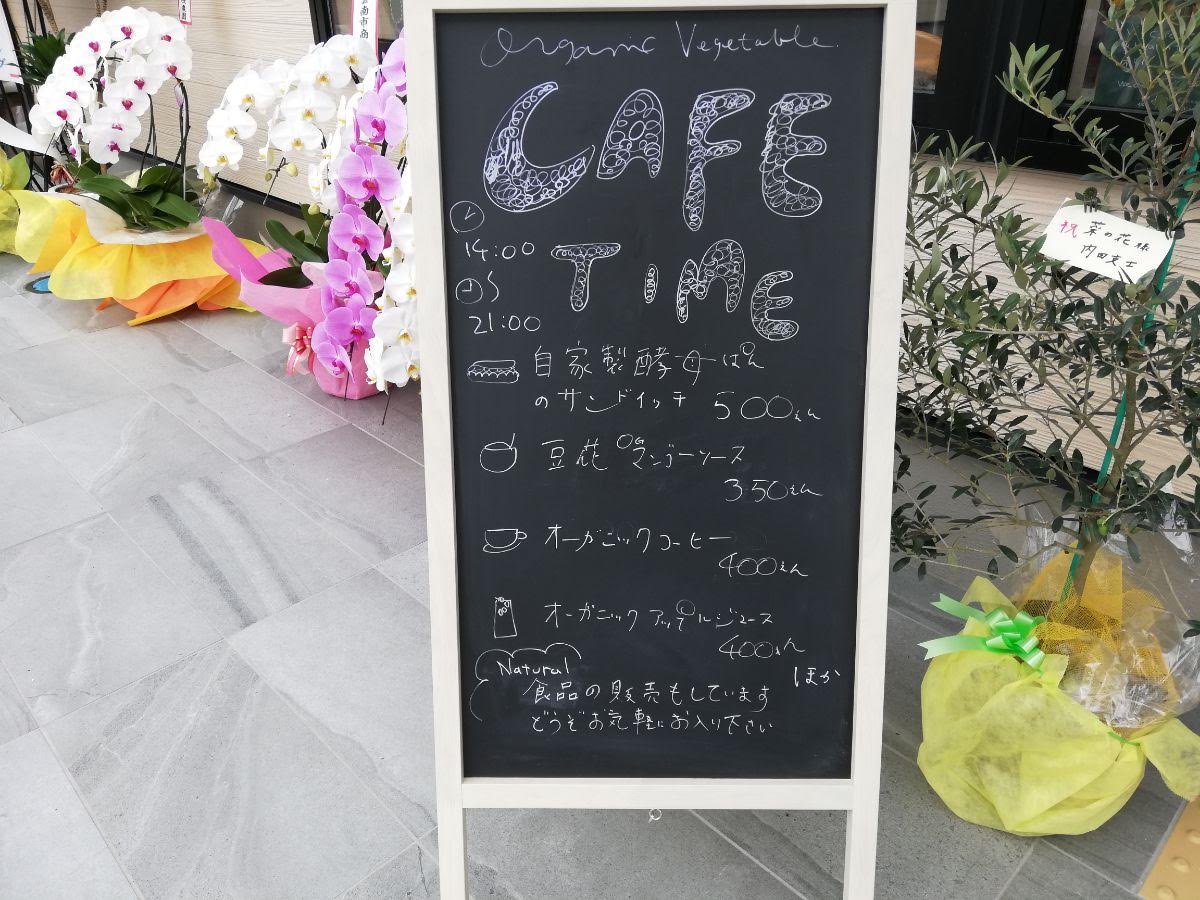 Organic Vegetable
CAFE
14:00
TIME
21:00
自家製酵母ぱん
のサンドイッチ 500えん
豆花 OGマンゴーソース
350えん
オーガニックコーヒー
400えん
オーガニックアップルジュース
400えん
ほか
Natural
食品の販売もしています
どうぞお気軽にお入り下さい
祝 菜の花様